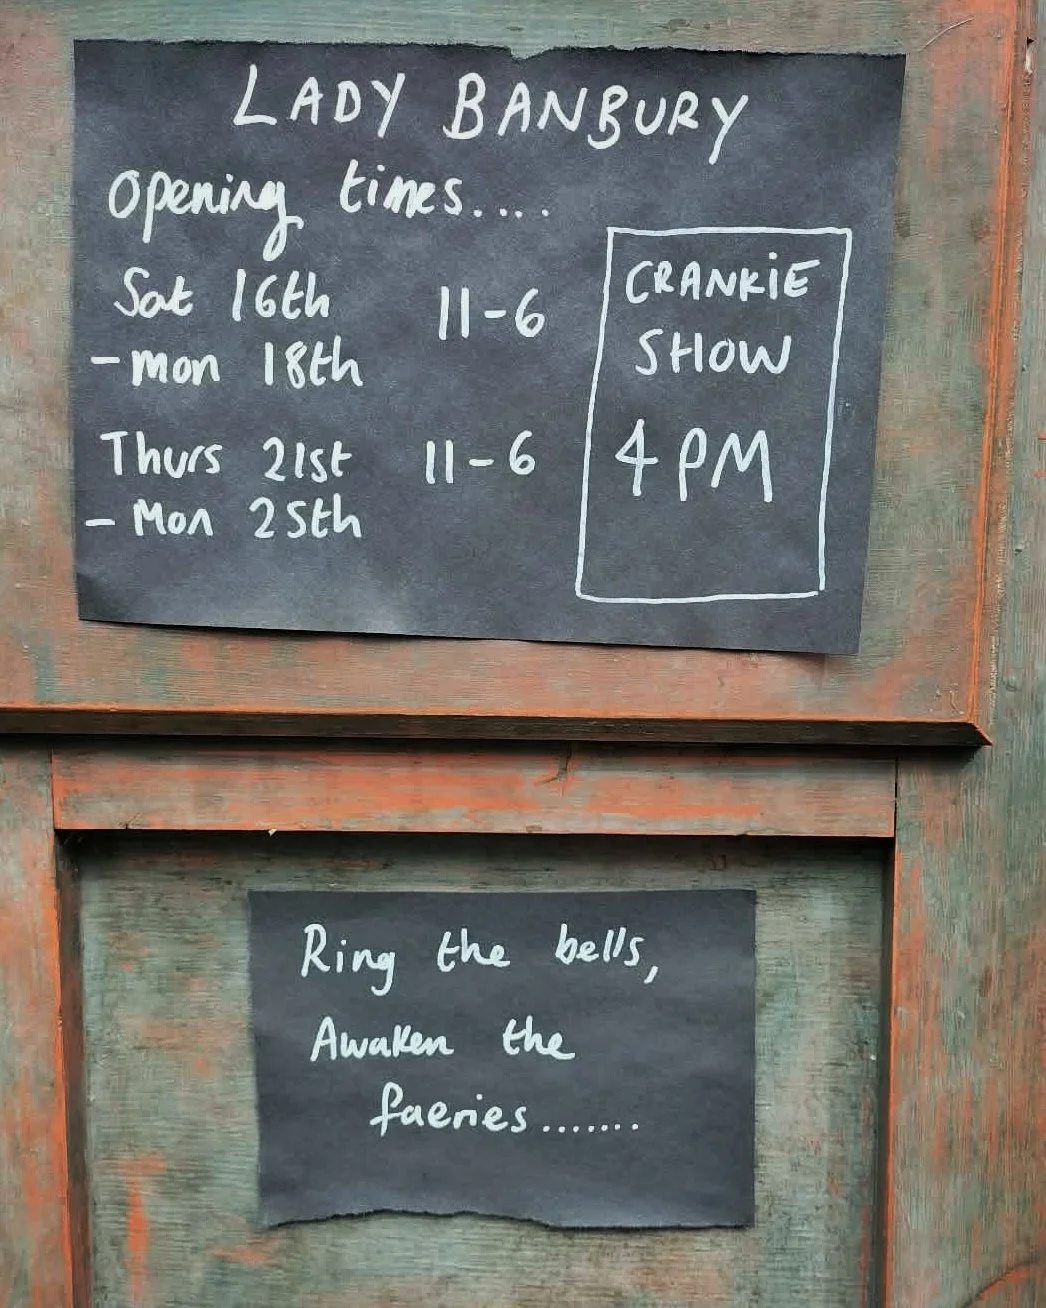 LADY BANBURY
Opening times....
Sat 16th 11-6
- mon 18th
Thurs 21st 11-6
- Mon 25th
CRANKiE
SHOW
4PM
Ring the bells,
Awaken the
faeries.......